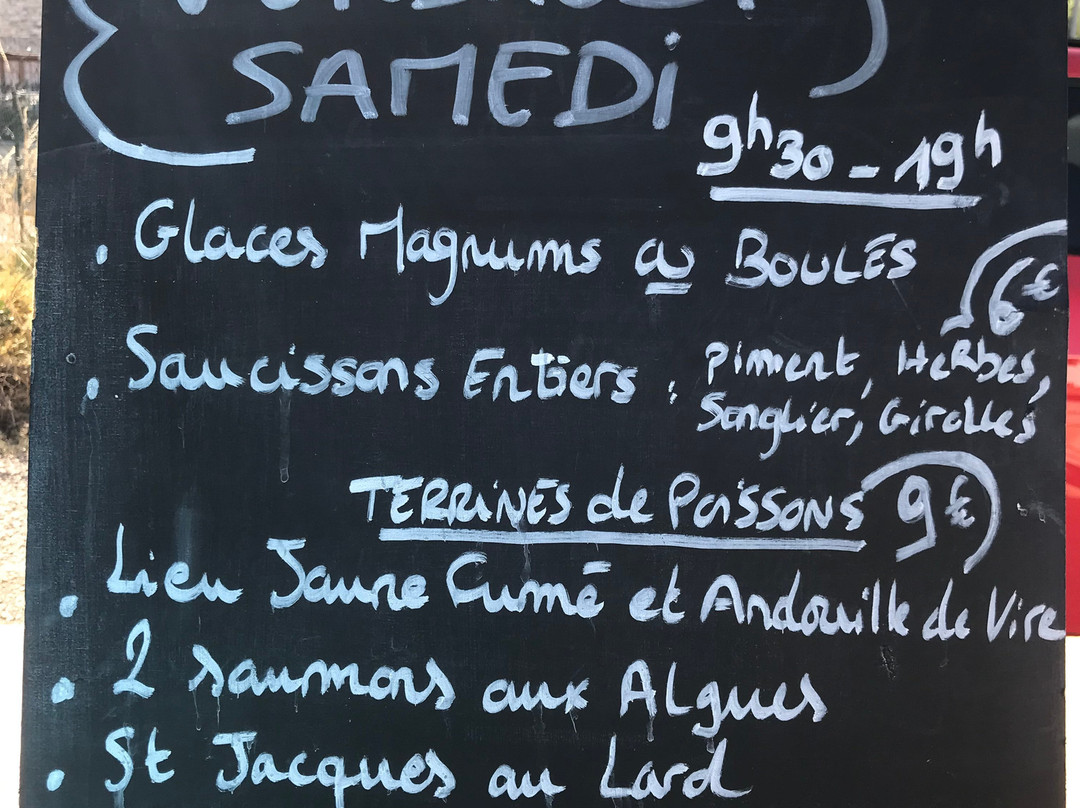 SAMEDi
9h30 - 19h
. Glaces Magnums ou BOULES
6€
. Saucissons Entiers : Piment, Herbes,
Sanglier, Girolles
TERRiNES de PoissoNS 9€
. Lieu Jaune Fumé et Andouille de Vire
. 2 saumons aux Algues
. St Jacques au Lard